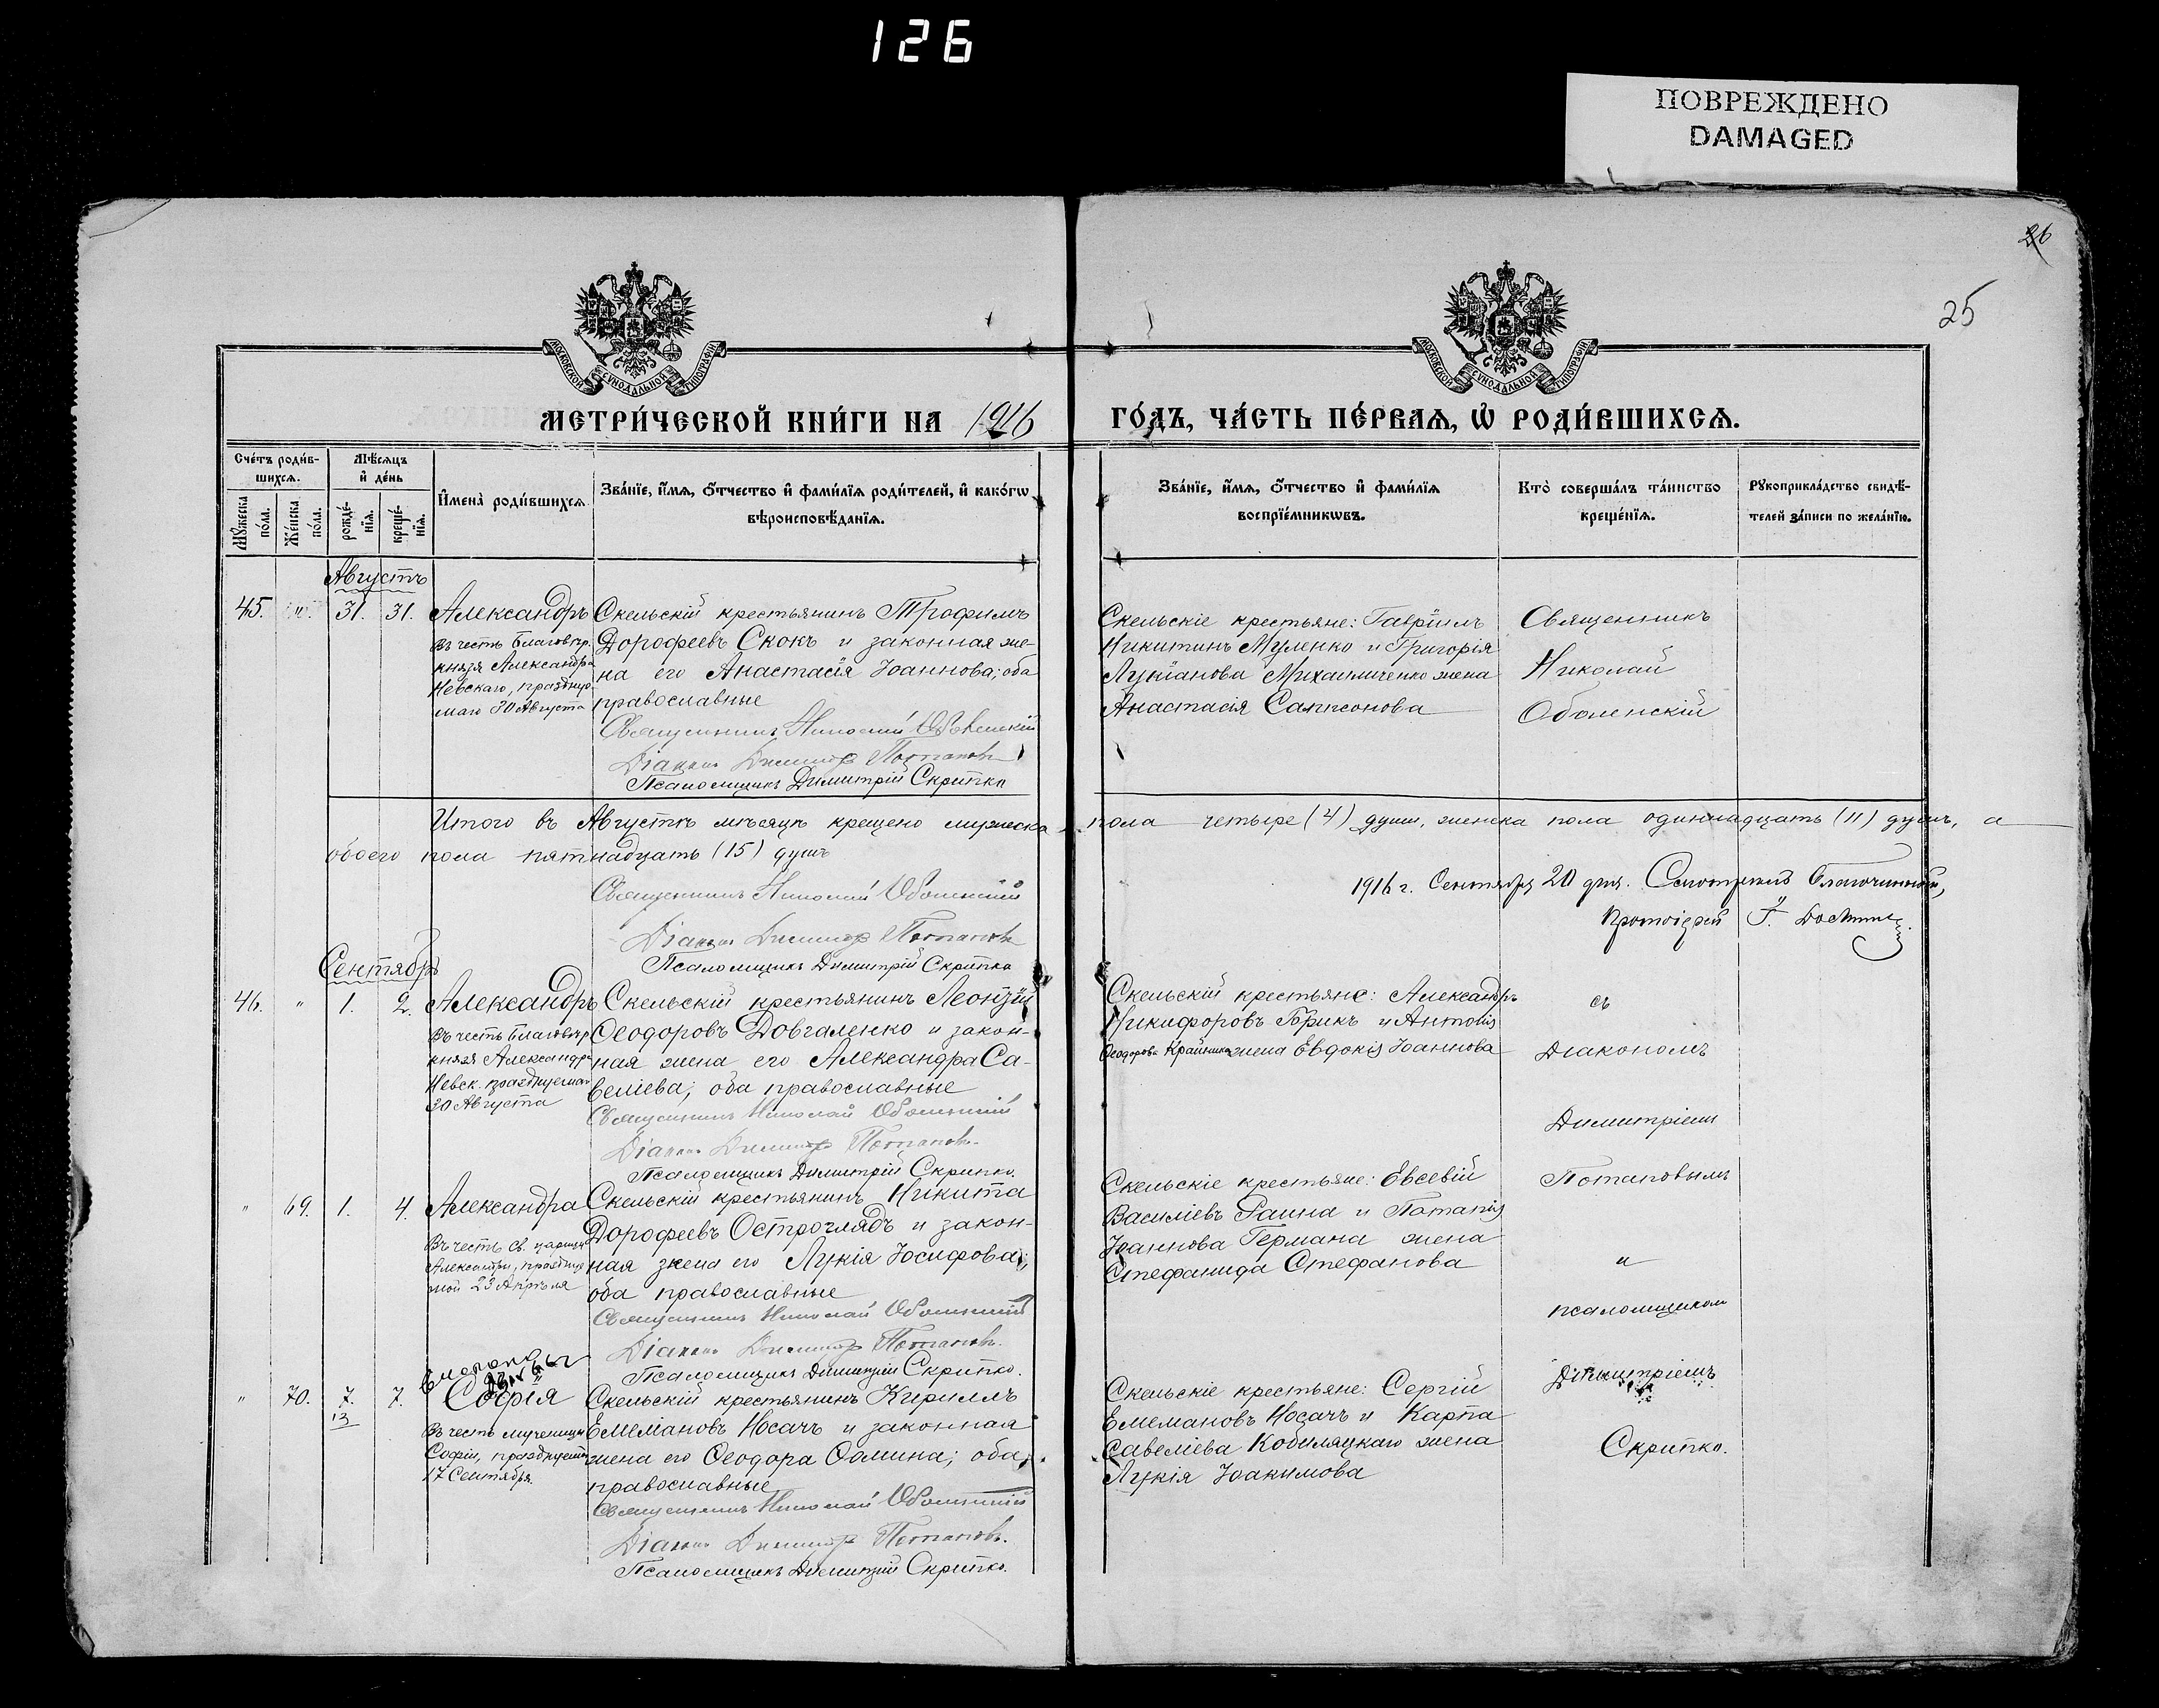 126
ПОВРЕЖДЕНО
DAMAGED
26
25
МОСКОВСКОЙ СУНОДАЛЬНОЙ ТИПОГРАФІИ
МОСКОВСКОЙ СУНОДАЛЬНОЙ ТИПОГРАФІИ
МЕТРИ́ЧЕСКОЙ КНИ́ГИ НА 1916
ГО́ДЪ, ЧА́СТЬ ПЕ́РВАѦ, Ѡ҆ РОДИ́ВШИХСѦ.
Сче́тъ роди́в-
шихсѧ.
Мѣ́сѧцъ
и҆ де́нь
И҆мена̀ роди́вшихсѧ
Зва́нїе, и҆́мѧ, ѻ҆́тчество и҆ фами́лїѧ роди́телей, и҆ како́гѡ
вѣроисповѣ́данїѧ.
Мꙋ́жеска
по́ла.
Же́нска
по́ла.
рожде́-
нїѧ.
креще́-
нїѧ.
Зва́нїе, и҆́мѧ, ѻ҆́тчество и҆ фами́лїѧ
воспрїе́мникѡвъ.
Кто̀ соверша́лъ та́инство
креще́нїѧ.
Рꙋкоприкла́дство свидѣ́-
телей за́писи по жела́нїю.
Августъ
45. " 31. 31. Александръ
Въ честь Благовѣр.
князя Александра
Невскаго, празднуе-
маго 30 Августа
Скельскій крестьянинъ Трофимъ
Дорофеевъ Скокъ и законная же-
на его Анастасія Іоаннова; оба
православные
Священникъ Николай Оболенскій
Діаконъ Димитрій Потаповъ
Псаломщикъ Димитрій Скрипка
Скельскіе крестьяне: Гавріилъ
Никитинъ Муленко и Григорія
Лукіанова Михайличенко жена
Анастасія Сампсонова
Священникъ
Николай
Оболенскій
Итого въ Августѣ мѣсяцѣ крещено мужеска пола четыре (4) души, женска пола одиннадцать (11) душъ, а
обоего пола пятнадцать (15) душъ
Священникъ Николай Оболенскій
Діаконъ Димитрій Потаповъ
Псаломщикъ Димитрій Скрипка
1916 г. Сентября 20 дня. Смотрѣлъ Благочинный,
Протоіерей
Сентябрь
46. " 1. 2. Александръ
Въ честь Благовѣр
князя Александра
Невск. празднуемаго
30 Августа
Скельскій крестьянинъ Леонтій
Ѳеодоровъ Довгаленко и закон-
ная жена его Александра Са-
веліева; оба православные
Священникъ Николай Оболенскій
Діаконъ Димитрій Потаповъ.
Псаломщикъ Димитрій Скрипко.
Скельскій крестьяне: Александръ
Никифоровъ Брикъ и Антонія
Ѳеодорова Крайника жена Евдокія Іоаннова
съ
Діакономъ
Димитріемъ
Потаповымъ
и
псаломщикомъ
Димитріемъ
Скрипко.
" 69. 1. 4. Александра
Въ честь св. царицы
Александры, празднуе
мой 23 Апрѣля
Скельскій крестьянинъ Никита
Дорофеевъ Остроглядъ и закон-
ная жена его Лукія Іосифова;
оба православные
Священникъ Николай Оболенскій
Діаконъ Димитрій Потаповъ.
Псаломщикъ Димитрій Скрипко.
Скельскіе крестьяне: Евсевій
Василіевъ Раина и Потапія
Іоаннова Германа жена
Стефанида Стефанова
" 70. 7. 7. Софія
13
Въ честь мученицы
Софіи, празднуемой
17 Сентября.
Скельскій крестьянинъ Кириллъ
Емеліановъ Носачъ и законная
жена его Ѳеодора Ѳомина; оба
православные
Священникъ Николай Оболенскій
Діаконъ Димитрій Потаповъ.
Псаломщикъ Димитрій Скрипко.
Скельскіе крестьяне: Сергій
Емеліановъ Носачъ и Карпа
Савеліева Кобиляцкаго жена
Лукія Іоакимова